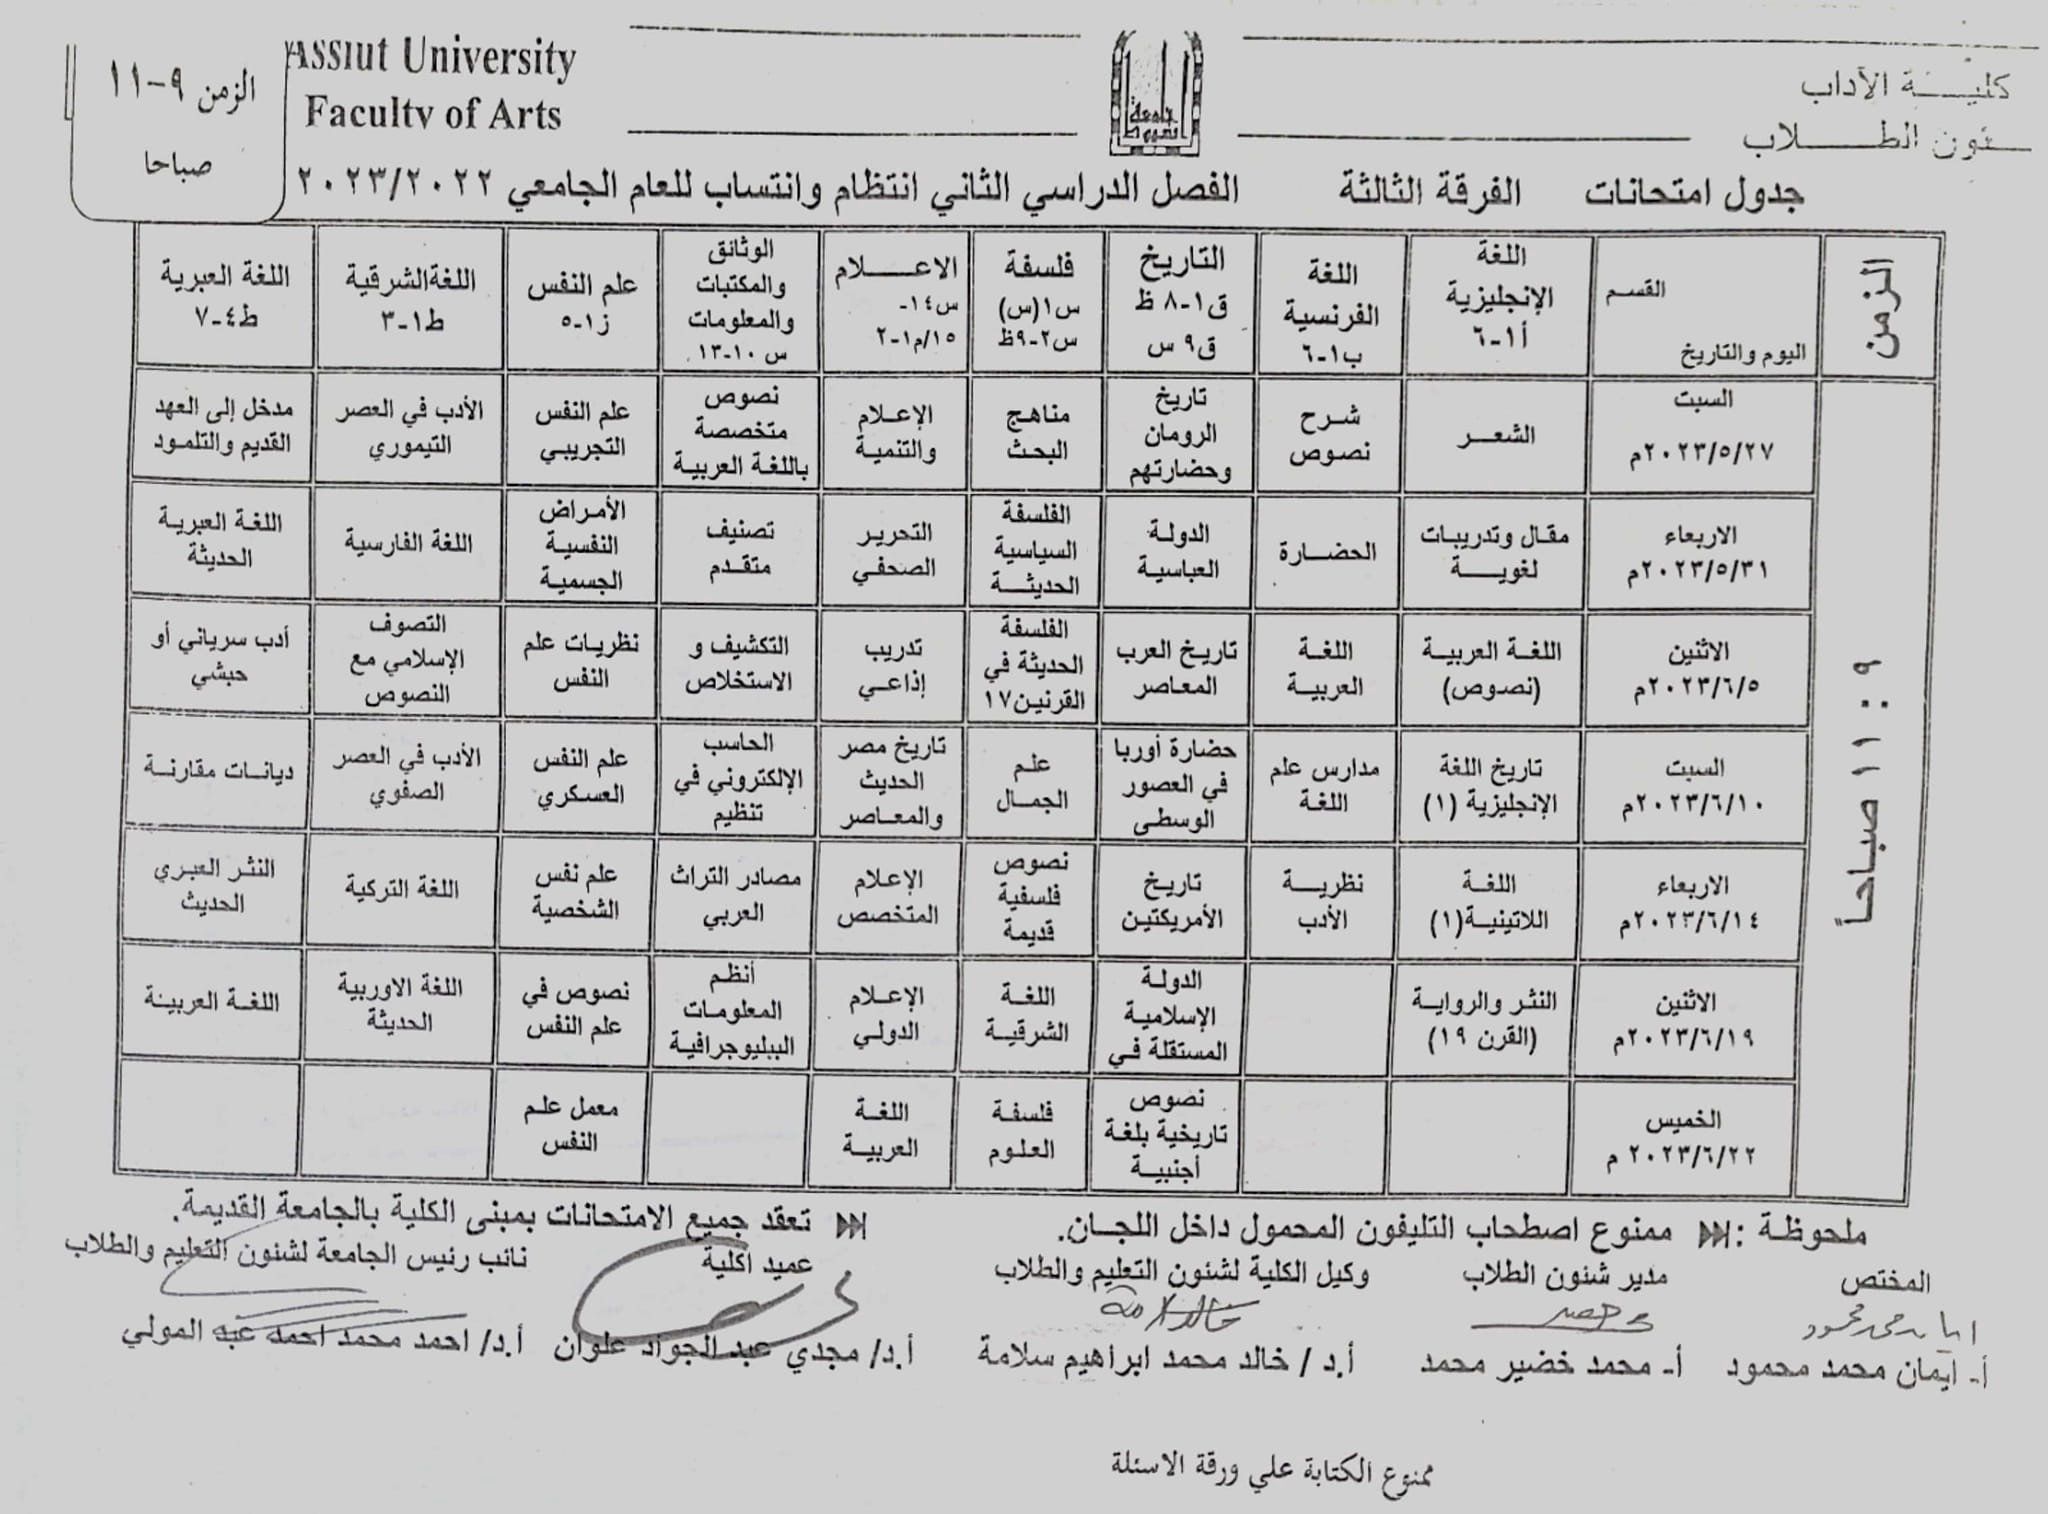 كليـــة الآداب
ـئون الطـــلاب
جامعة
أسيوط
Assiut University
Faculty of Arts
الزمن ٩-١١
صباحا
جدول امتحانات الفرقة الثالثة الفصل الدراسي الثاني انتظام وانتساب للعام الجامعي ٢٠٢٣/٢٠٢٢
الزمن
القسم
اليوم والتاريخ
اللغة
الإنجليزية
أ١-٦
اللغة
الفرنسية
ب١-٦
التاريخ
ق١-٨ ظ
ق٩ س
فلسفة
س١(س)
س٢-٩ظ
الاعـــلام
س١٤-
١٥/م١-٢
الوثائق
والمكتبات
والمعلومات
س ١٠-١٣
علم النفس
ز١-٥
اللغةالشرقية
ط١-٣
اللغة العبرية
ط٤-٧
٩ : ١١ صباحاً
السبت
٢٠٢٣/٥/٢٧م
الشعـــر
شرح
نصوص
تاريخ
الرومان
وحضارتهم
مناهج
البحث
الإعلام
والتنمية
نصوص
متخصصة
باللغة العربية
علم النفس
التجريبي
الأدب في العصر
التيموري
مدخل إلى العهد
القديم والتلمود
الاربعاء
٢٠٢٣/٥/٣١م
مقال وتدريبات
لغويـــة
الحضـــارة
الدولة
العباسية
الفلسفة
السياسية
الحديثة
التحرير
الصحفي
تصنيف
متقدم
الأمراض
النفسية
الجسمية
اللغة الفارسية
اللغة العبرية
الحديثة
الاثنين
٢٠٢٣/٦/٥م
اللغة العربية
(نصوص)
اللغة
العربية
تاريخ العرب
المعاصر
الفلسفة
الحديثة في
القرنين١٧
تدريب
إذاعي
التكشيف و
الاستخلاص
نظريات علم
النفس
التصوف
الإسلامي مع
النصوص
أدب سرياني أو
حبشي
السبت
٢٠٢٣/٦/١٠م
تاريخ اللغة
الإنجليزية (١)
مدارس علم
اللغة
حضارة أوربا
في العصور
الوسطى
علم
الجمال
تاريخ مصر
الحديث
والمعاصر
الحاسب
الإلكتروني في
تنظيم
علم النفس
العسكري
الأدب في العصر
الصفوي
ديانات مقارنة
الاربعاء
٢٠٢٣/٦/١٤م
اللغة
اللاتينية(١)
نظرية
الأدب
تاريخ
الأمريكتين
نصوص
فلسفية
قديمة
الإعلام
المتخصص
مصادر التراث
العربي
علم نفس
الشخصية
اللغة التركية
النثر العبري
الحديث
الاثنين
٢٠٢٣/٦/١٩م
النثر والرواية
(القرن ١٩)
الدولة
الإسلامية
المستقلة في
اللغة
الشرقية
الإعلام
الدولي
أنظم
المعلومات
الببليوجرافية
نصوص في
علم النفس
اللغة الاوربية
الحديثة
اللغة العربية
الخميس
٢٠٢٣/٦/٢٢ م
نصوص
تاريخية بلغة
أجنبية
فلسفة
العلوم
اللغة
العربية
معمل علم
النفس
ملحوظة : ممنوع اصطحاب التليفون المحمول داخل اللجـان. تعقد جميع الامتحانات بمبنى الكلية بالجامعة القديمة.
المختص مدير شئون الطلاب وكيل الكلية لشئون التعليم والطلاب عميد اكلية نائب رئيس الجامعة لشئون التعليم والطلاب
أ- ايمان محمد محمود أ- محمد خضير محمد أ.د / خالد محمد ابراهيم سلامة أ.د/ مجدي عبد الجواد علوان أ.د/ احمد محمد احمد عبد المولي
ممنوع الكتابة علي ورقة الاسئلة